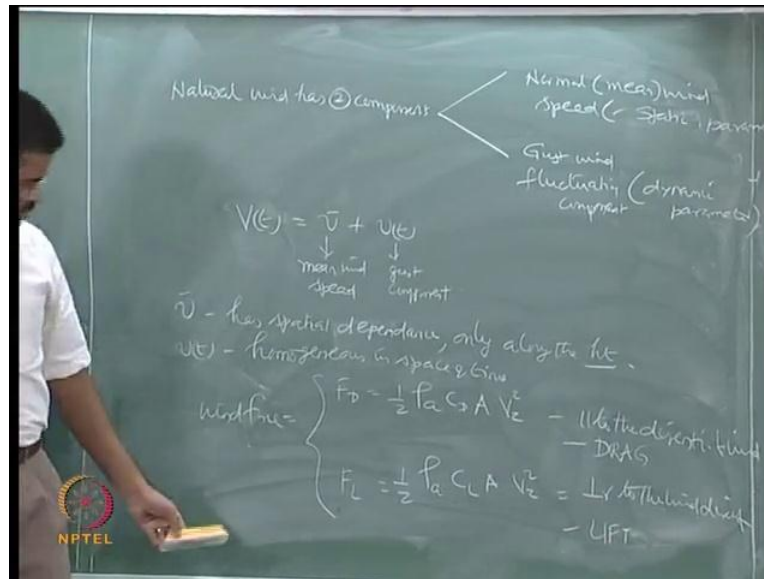 Natural wind has ② component
Normal (mean) wind
speed ( - static, param
Gust wind
fluctuating (dynamic
component parameter)
V(t) = v̄ + v(t)
↓ ↓
mean wind gust
speed component
v̄ - has spatial dependance, only along the ht.
v(t) - homogeneous in space & time
wind force =
F_D = 1/2 ρ_a C_D A V_z² - ||to the direction of wind
- DRAG
F_L = 1/2 ρ_a C_L A V_z² = ⊥r to the wind direct
- LIFT
NPTEL